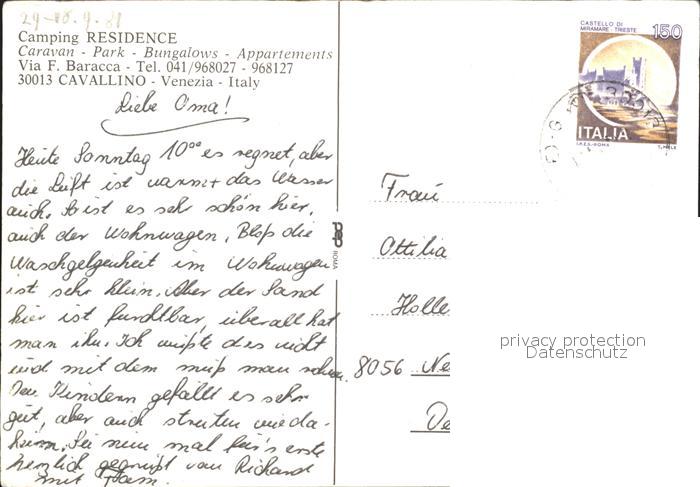 Camping RESIDENCE
Caravan - Park - Bungalows - Appartements
Via F. Baracca - Tel. 041/968027 - 968127
30013 CAVALLINO - Venezia - Italy
Liebe Oma!
Heute Sonntag 10°° es regnet, aber
die Luft ist warm + das Wasser
auch. So ist es sehr schön hier,
auch der Wohnwagen, Bloß die
Waschgelgenheit im Wohnwagen
ist sehr klein. Aber der Sand
hier ist furchtbar, überall hat
man ihn. Ich wußte dies nicht
und mit dem muß man
Den Kindern gefällt es sehr
gut, aber auch streiten wie da-
heim. Sei nun mal für's erste
herzlich gegrüßt von Richard
mit Fam.
CASTELLO DI
MIRAMARE - TRIESTE
150
ITALIA
I.P.Z.S.-ROMA
ROMA
Frau
Ottilia
Holle
8056 Ne
privacy protection
Datenschutz